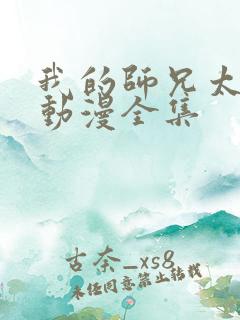 我的師兄太
動漫全集
古奈_xs8
未经同意禁止转载